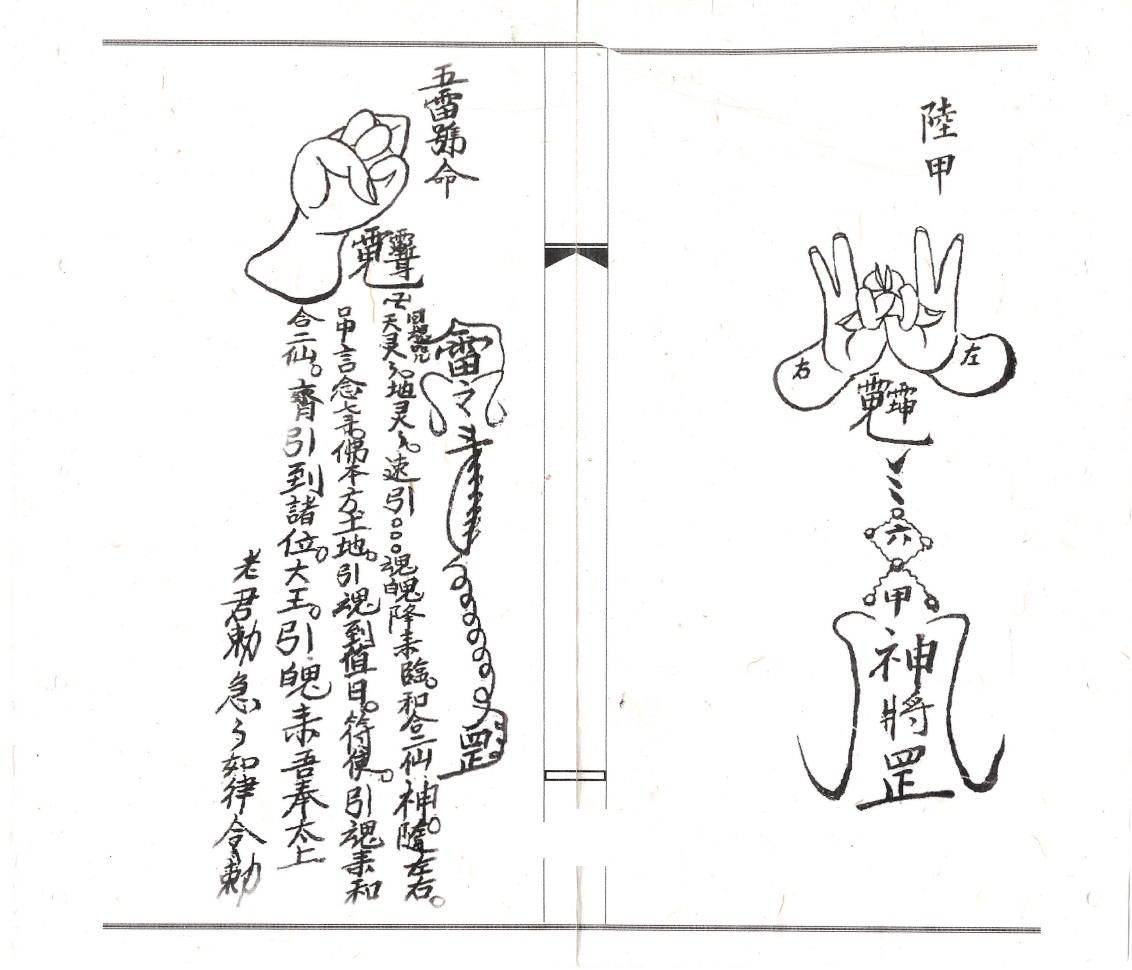 陸甲
右
左
六
甲
神將罡
五雷號命
雷令
罡
回魂咒
天灵〻地灵〻。速引○○○魂魄降耒臨。和合二仙神。隨左右。
言念七耒佛本方土地。引魂到值日。符使。引魂耒和
合二仙。齊引到諸位。大王。引魄耒吾奉太上
老君勅急〻如律令勅